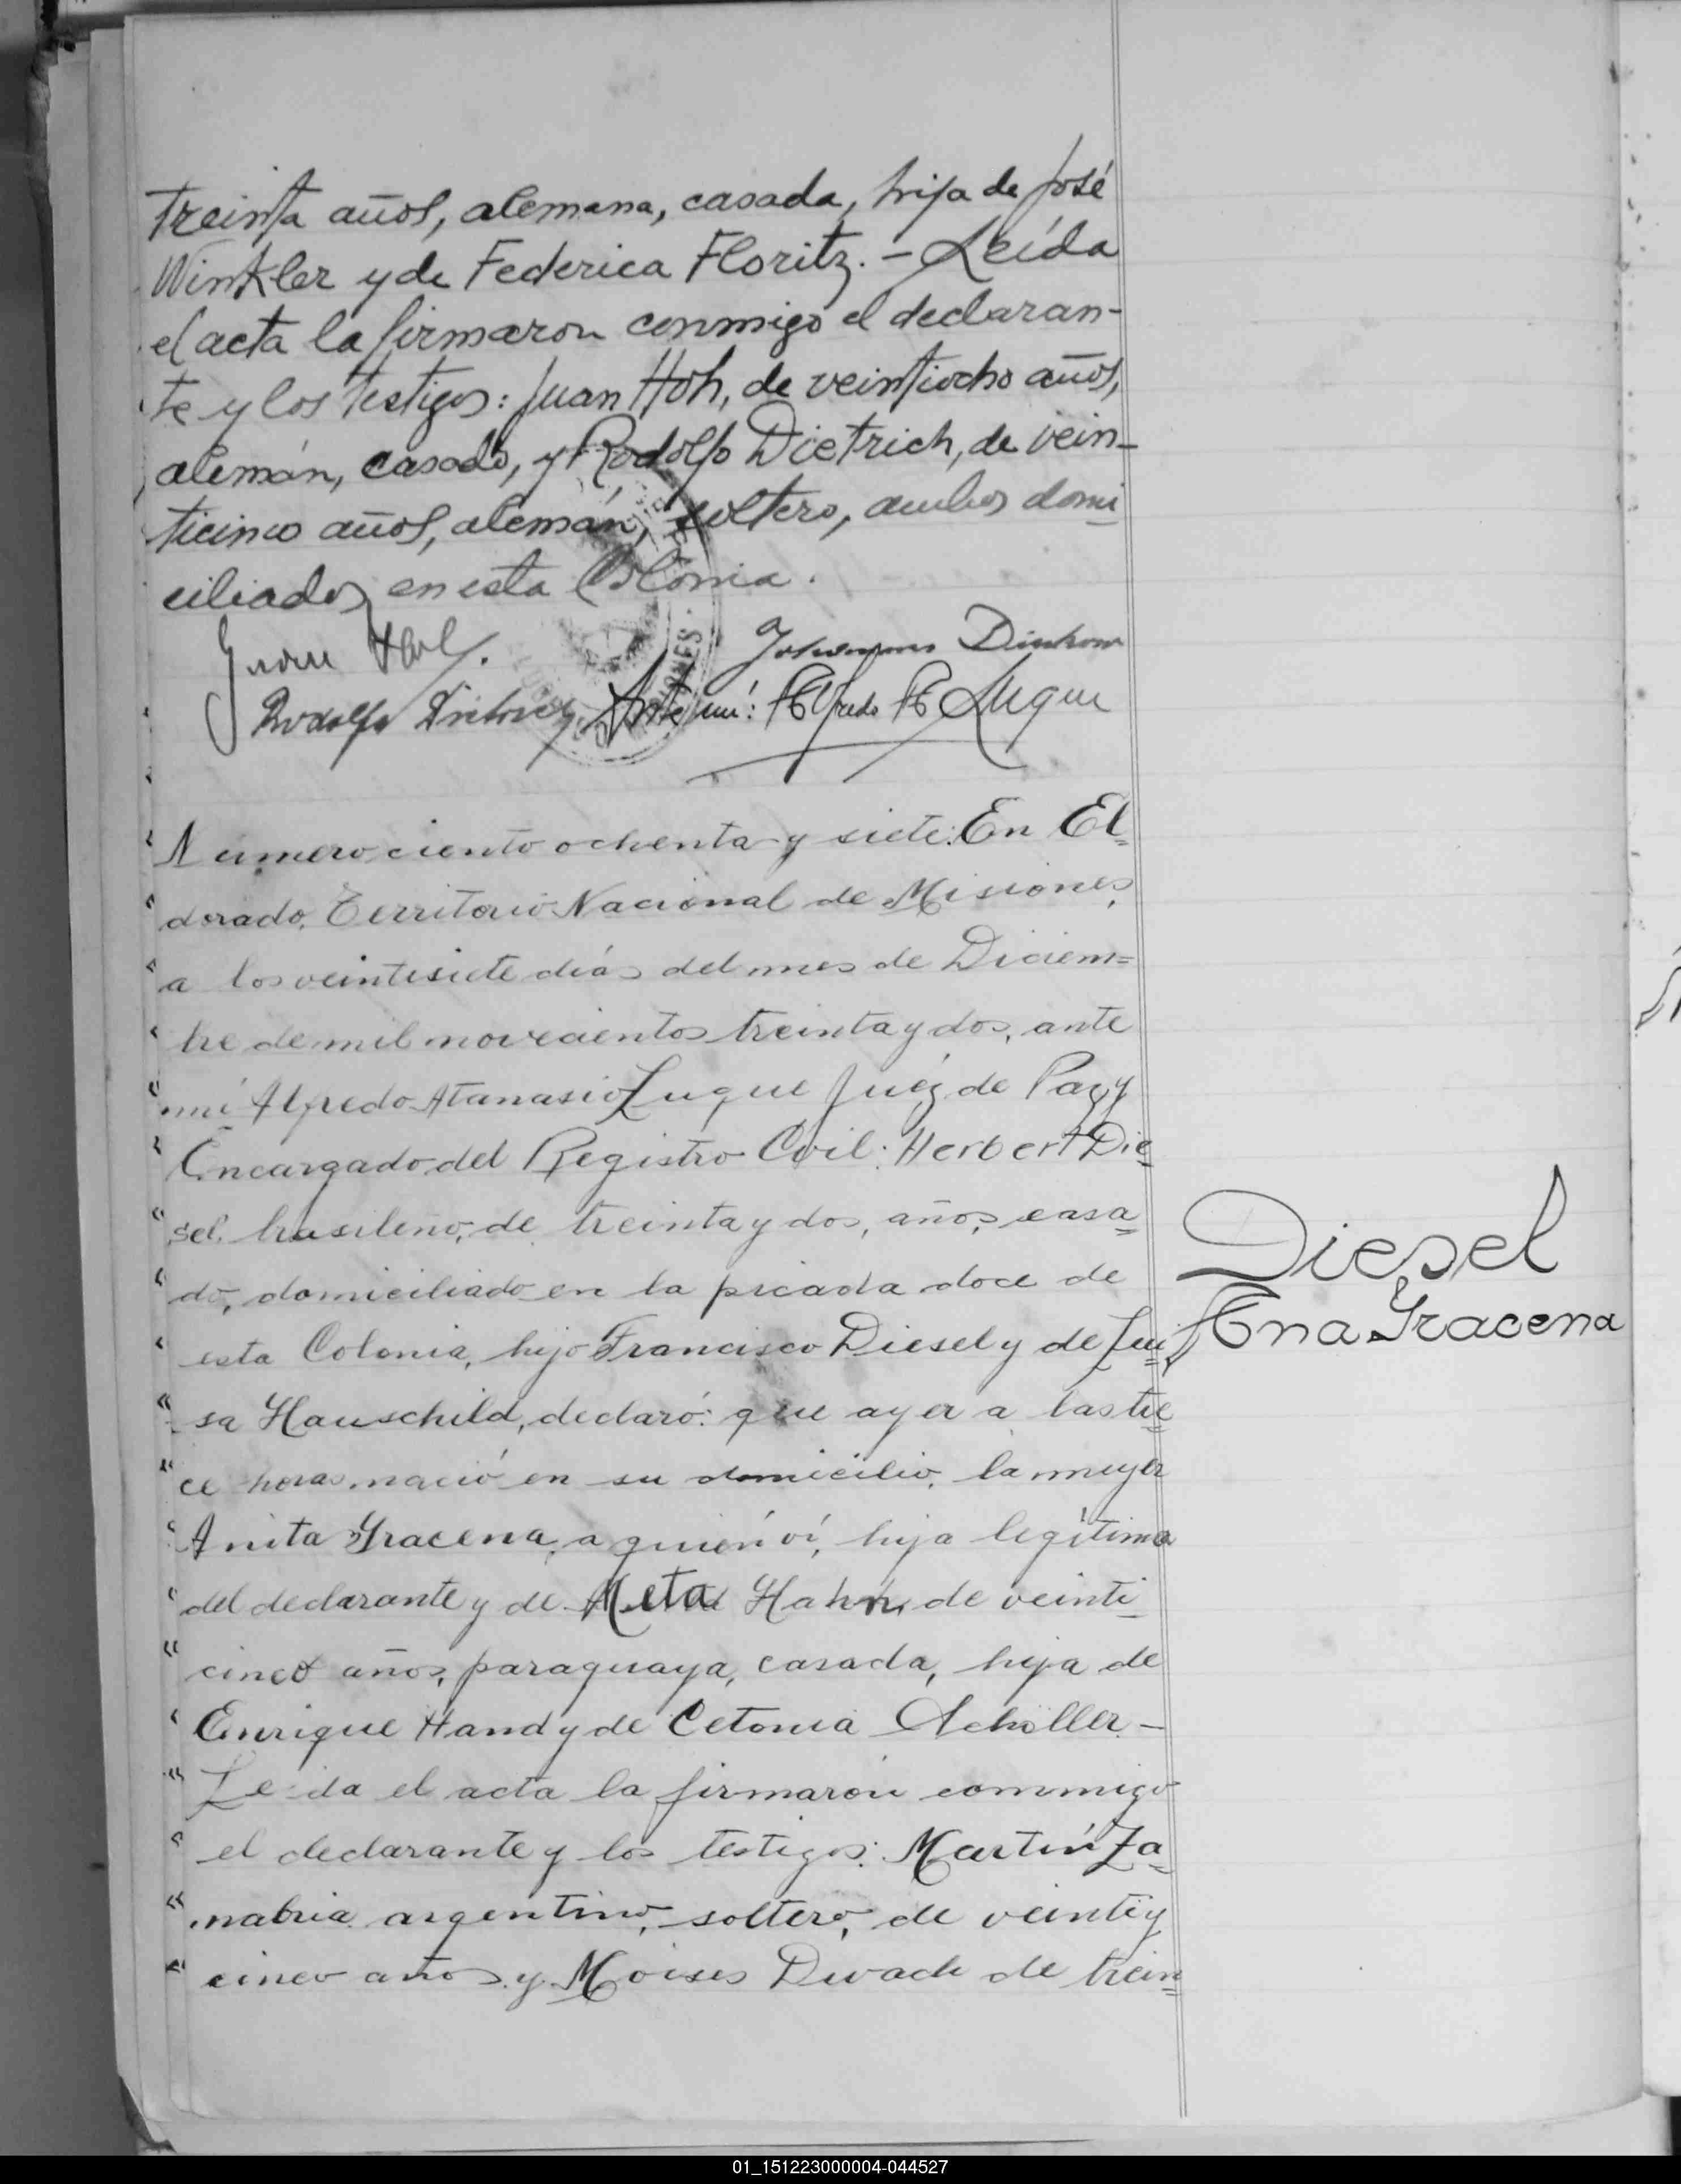 treinta años, alemana, casada, hija de José
Winkler y de Federica Floritz. - Leída
el acta la firmaron conmigo el declaran-
te y los testigos: Juan Hoh, de veintiocho años,
alemán, casado, y Rodolfo Dietrich, de vein-
ticinco años, alemán, soltero, ambos domi
ciliados en esta Colonia.
Juan Hoh. Johannes
Rodolfo Dietrich Ante mí: Alfredo A Luque
MISIONES
Número ciento ochenta y siete: En El=
dorado, Territorio Nacional de Misiones,
a los veintisiete días del mes de Diciem=
bre de mil novecientos treinta y dos, ante
mí Alfredo Atanasio Luque Juéz de Paz y
Encargado del Registro Civil: Herbert Die=
sel, brasileño, de treinta y dos, años, casa=
do, domiciliado en la picada doce de
esta Colonia, hijo Francisco Diesel y de Lui
sa Hauschild, declaró: que ayer a las tre=
ce horas, nació en su domicilio, la mujer
Anita Gracena, a quién ví, hija legítima
del declarante y de Meta Hahn, de veinti=
cinco años, paraguaya, casada, hija de
Enrique Hand y de Cetonia Schöller -
Leida el acta la firmarón conmigo
el declarante y los testigos: Martín Za=
nabria argentino, soltero, de veinti y
cinco años y Moises Dwack de trein=
Diesel
Ana Gracena
01_151223000004-044527